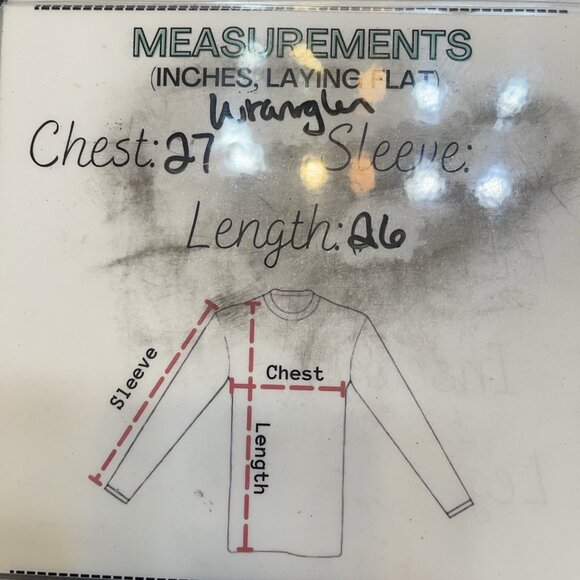 MEASUREMENTS
(INCHES, LAYING FLAT)
Wrangler
Chest: 27 Sleeve:
Length: 26
Sleeve
Chest
Length